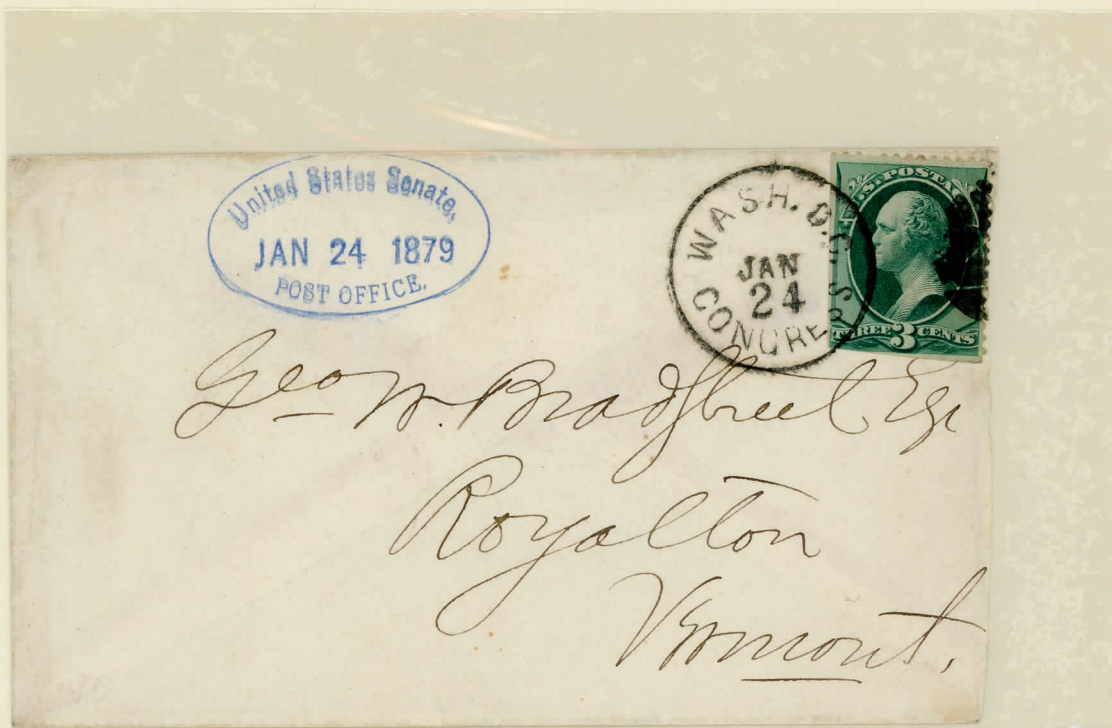 United States Senate,
JAN 24 1879
POST OFFICE.
WASH. D.C.
JAN
24
CONGRESS
U.S. POSTAGE
THREE 3 CENTS
Geo W. Bradstreet Esq
Royalton
Vermont.